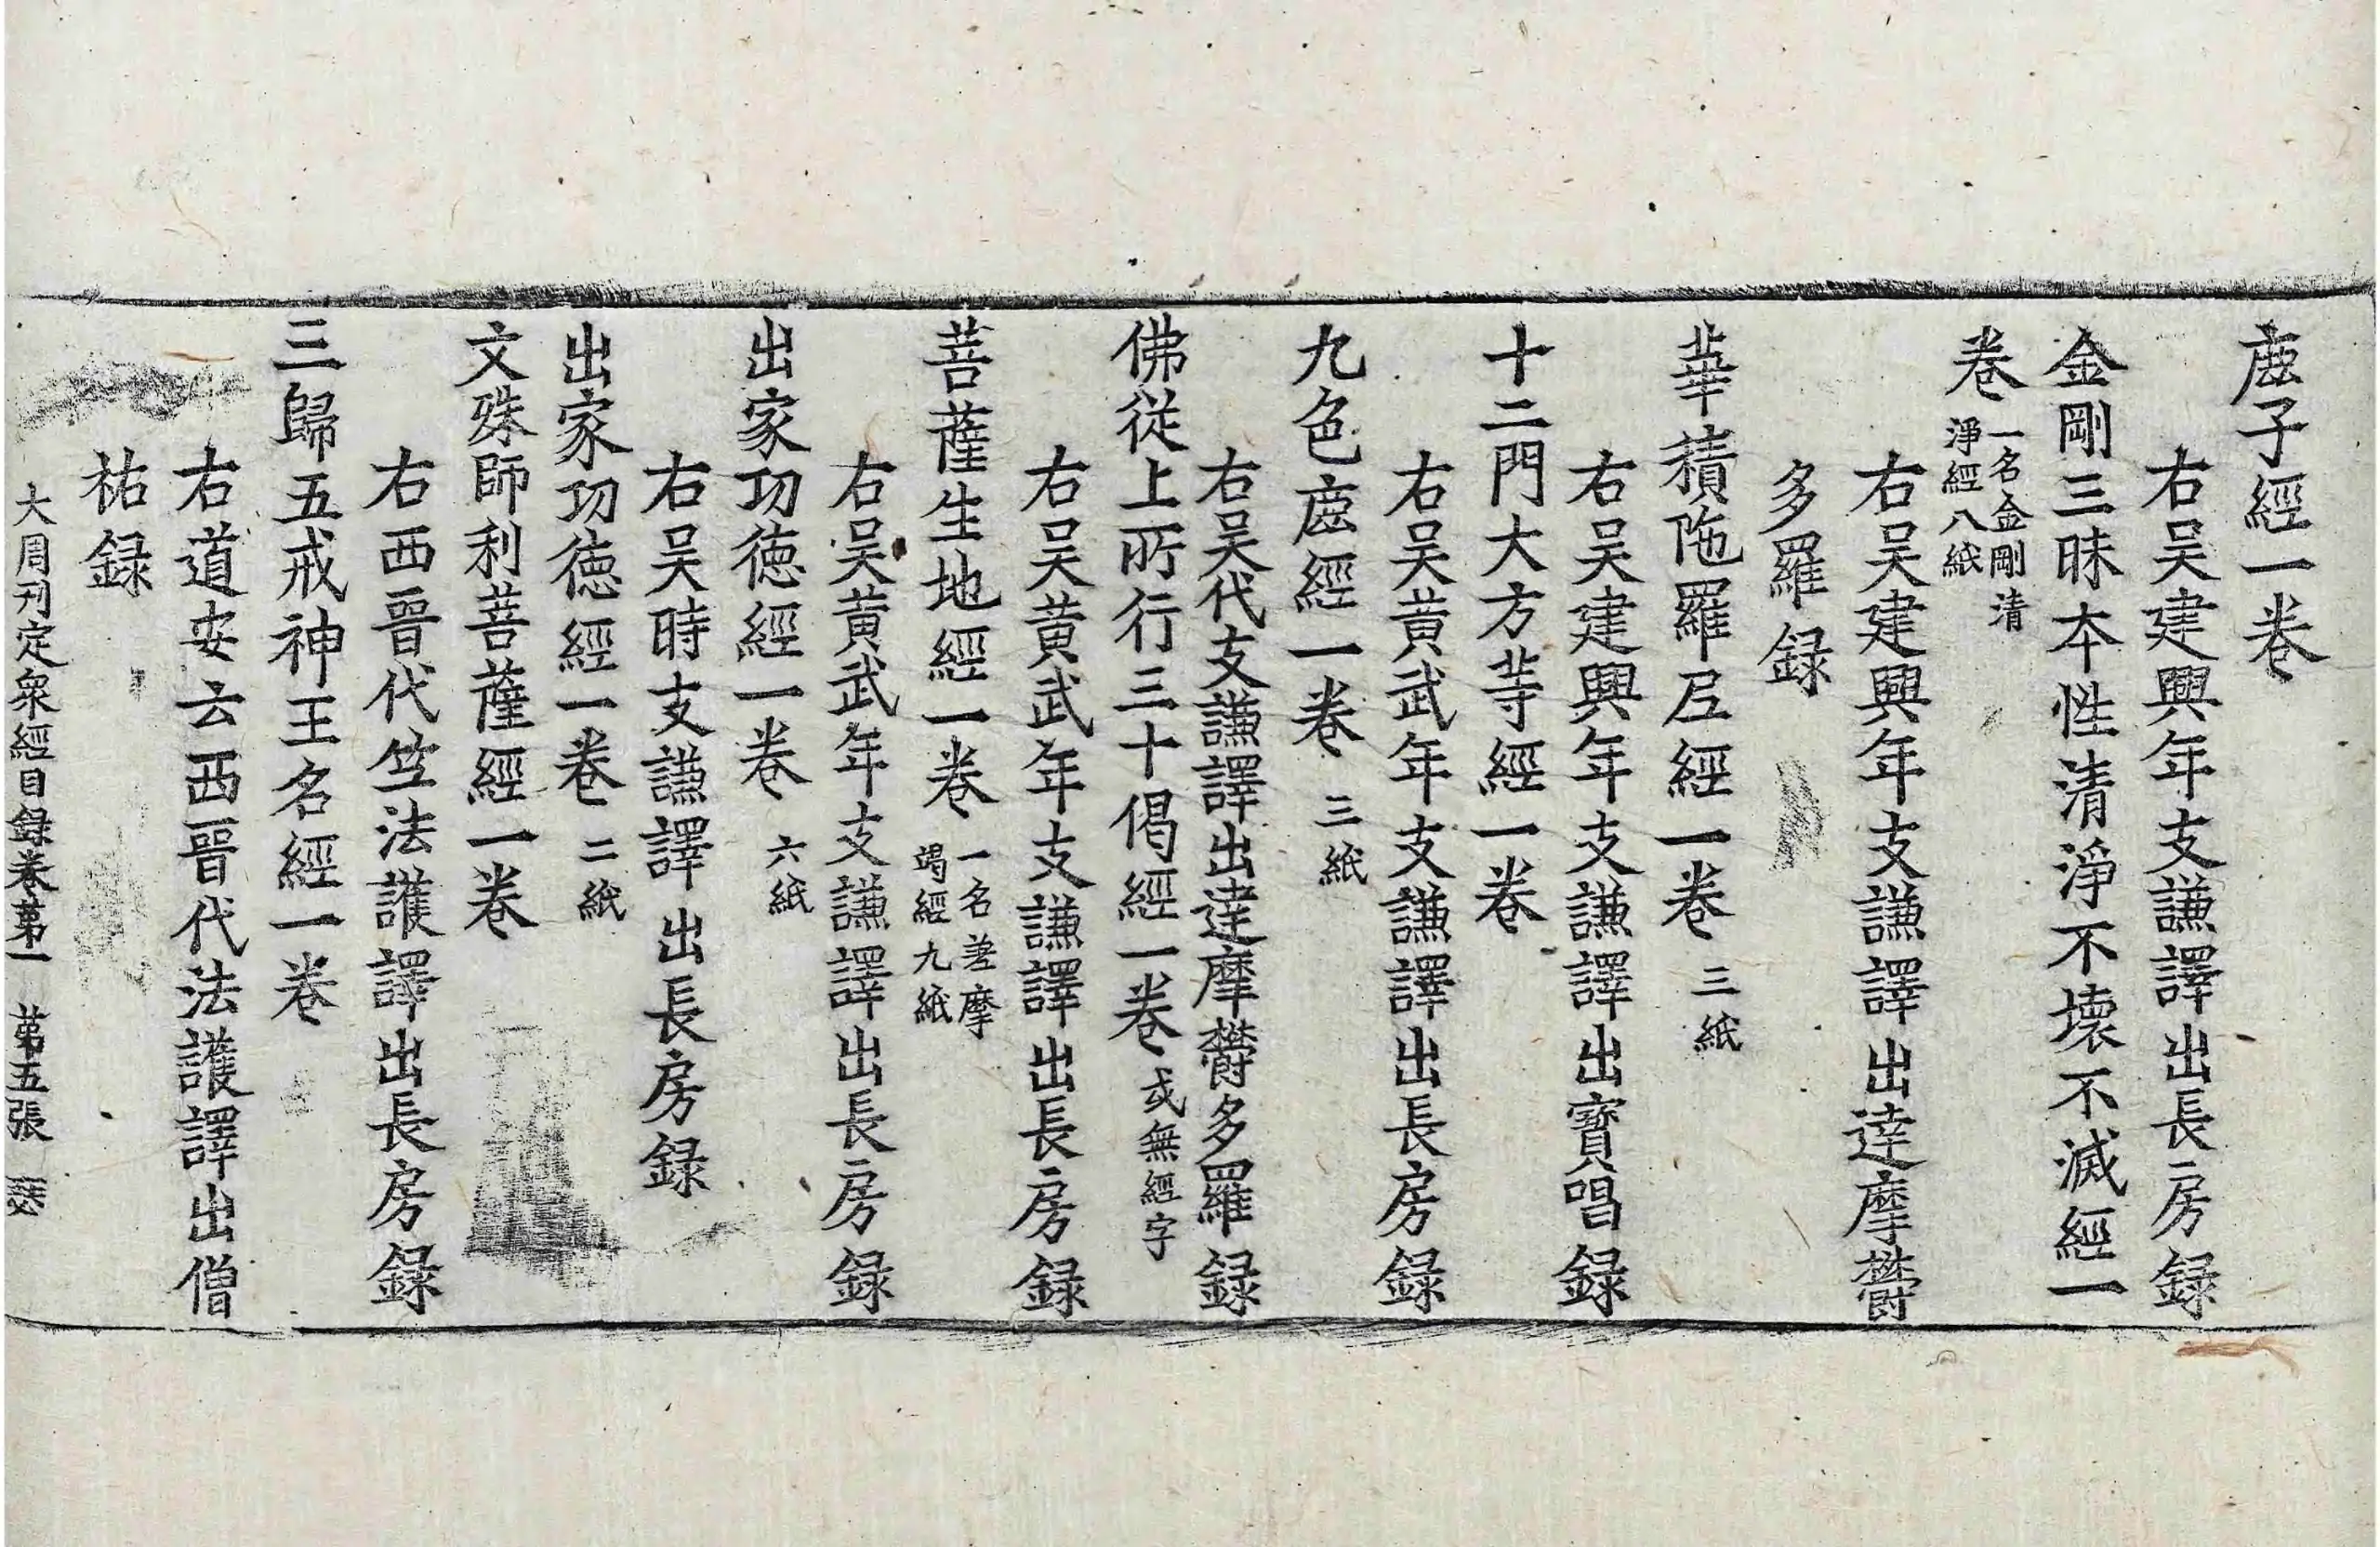 鹿子經一卷
右吴建興年支謙譯出長房錄
金剛三昧本性清淨不壞不滅經一
卷 一名金剛清淨經八紙
右吴建興年支謙譯出達摩欝
多羅錄
華積陁羅尼經一卷 三紙
右吴建興年支謙譯出寶唱錄
十二門大方等經一卷
右吴黄武年支謙譯出長房錄
九色鹿經一卷 三紙
右吴代支謙譯出達摩欝多羅錄
佛從上所行三十偈經一卷 或無經字
右吴黄武年支謙譯出長房錄
菩薩生地經一卷 一名差摩竭經九紙
右吴黄武年支謙譯出長房錄
出家功德經一卷 六紙
右吴時支謙譯出長房錄
出家功德經一卷 二紙
文殊師利菩薩經一卷
右西晉代竺法護譯出長房錄
三歸五戒神王名經一卷
右道安云西晉代法護譯出僧
祐錄
大周刊定衆經目錄卷第一 第五張